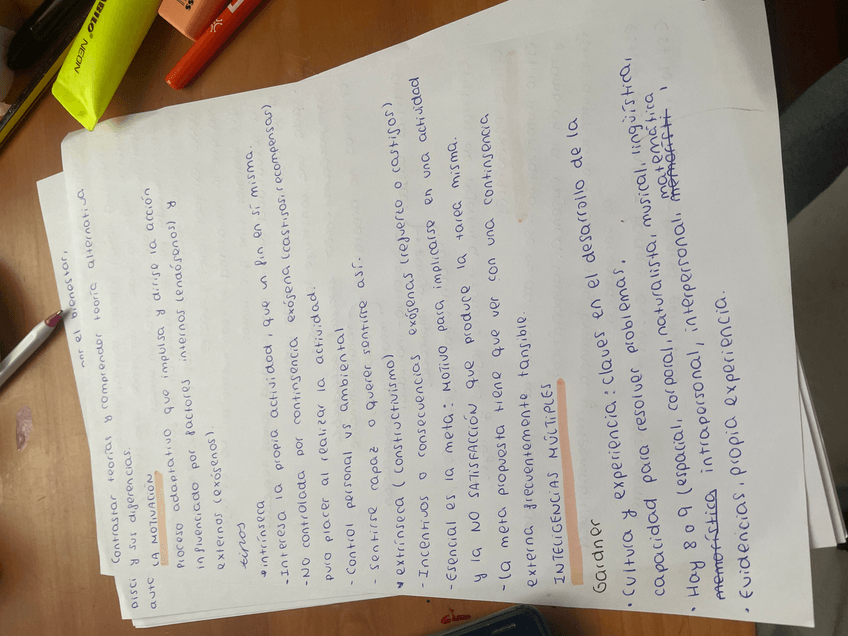 por el bienestar,
Contrastar teorías y comprender teoría alternativa
Disci y sus diferencias.
auto LA MOTIVACIÓN
Proceso adaptativo que impulsa y dirige la acción
influenciado por factores internos (endógenos) y
externos (exógenos).
tipos
• intrínseca
- Interesa la propia actividad, que un fin en sí misma.
- NO controlada por contingencia exógena (castigos, recompensas)
puro placer al realizar la actividad.
- Control personal vs ambiental
- Sentirse capaz o querer sentirse así.
• extrínseca (constructivismo)
- Incentivos o consecuencias exógenas (refuerzo o castigos)
- Esencial es la meta: MOTIVO para implicarse en una actividad
y la NO SATISFACCIÓN que produce la tarea misma.
- La meta propuesta tiene que ver con una contingencia
externa frecuentemente tangible.
INTELIGENCIAS MÚLTIPLES
Gardner
• Cultura y experiencia: claves en el desarrollo de la
capacidad para resolver problemas.
• Hay 8 o 9 (espacial, corporal, naturalista, musical, lingüística,
memorística intrapersonal, interpersonal, matemática
• Evidencias, propia experiencia.
STABILO NEON